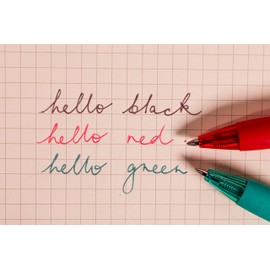 hello black
hello red
hello green